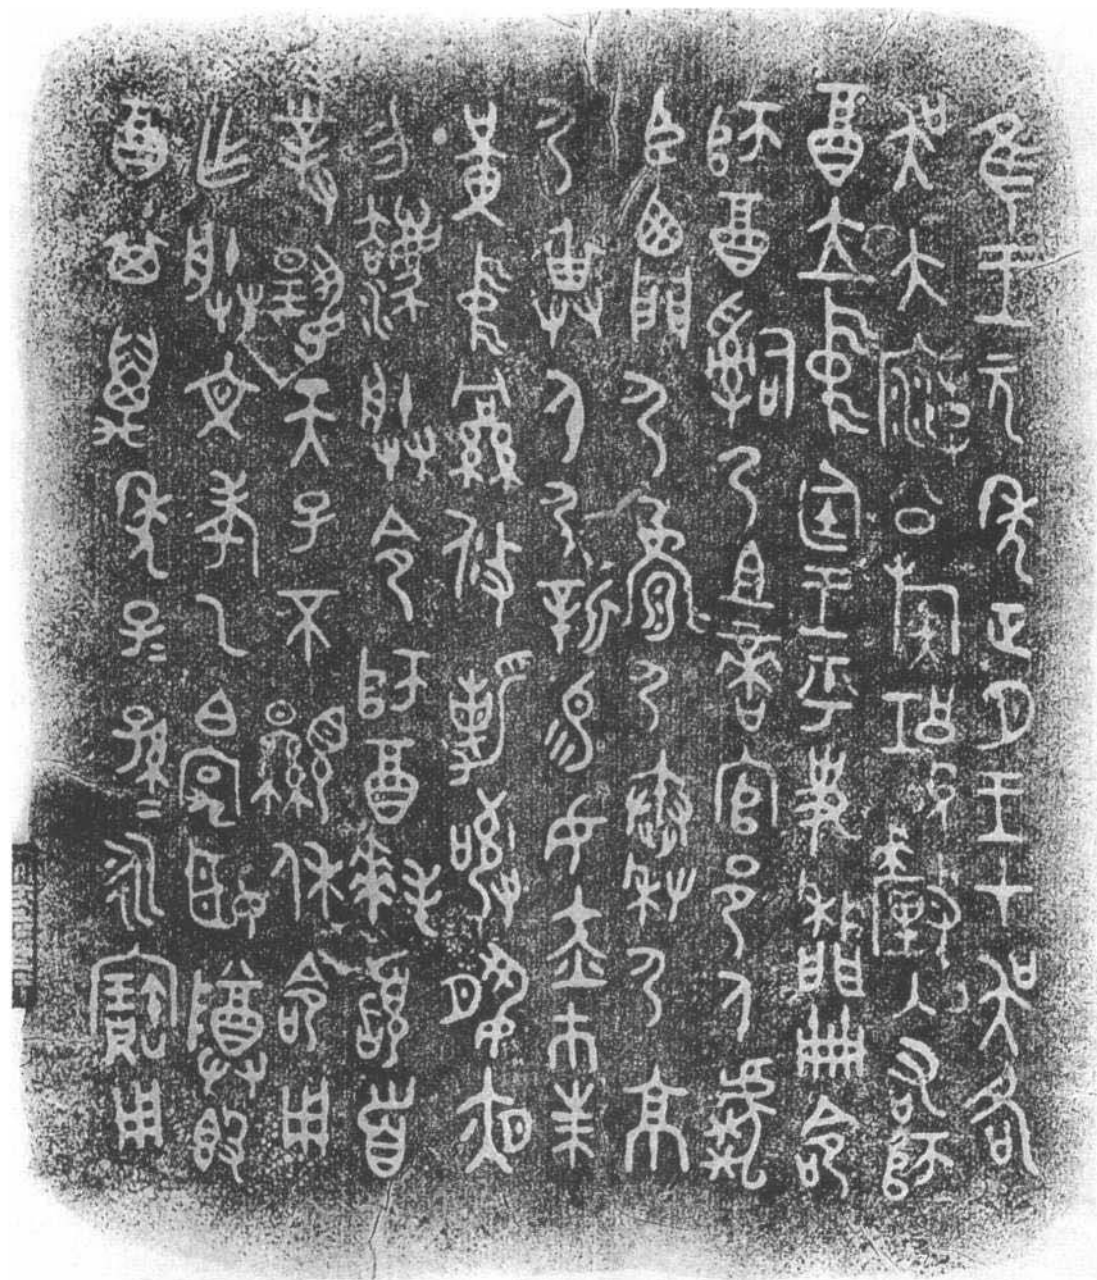 隹王元年正月王才吳各
吳大廟公族釐入右師
酉立中廷王乎史冊命
師酉嗣乃且啻官邑人虎
臣西門尸尸秦尸京
尸身尸新易女赤巿朱
黃中攸勒敬夙夜勿
灋朕令師酉拜首
對揚天子不顯休命用
乍朕文考乙白宄姬尊
酉其萬年子=孫=永寶用